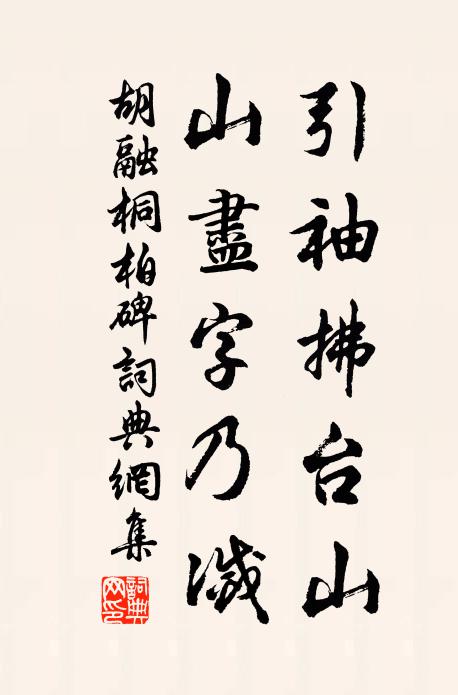 引袖拂台山
山盡字乃滅
胡融桐柏碑詞典網集
詞典网印